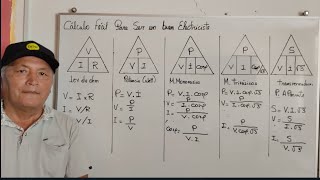 Cálculo Fácil Para Ser un buen Electricista
V
I R
Ley de ohm
V = I x R
I = V/R
V/I
P
V I
Potencia (Watt)
P = V . I
V = P/I
I = P/V
P
V I Cosφ
M. Monofásico
P = V . I . Cosφ
V = P/I . Cosφ
I = P/V . Cosφ
Cosφ = P/V . I
P
V I
M. Trifásicos
P = V.I.Cosφ.√3
V = P/I . Cosφ.√3
I = P/V.Cosφ.√3
S
V I √3
Transformadores
P. Aparente
S = V.I.√3
V = S/I.√3
I = S/V.√3